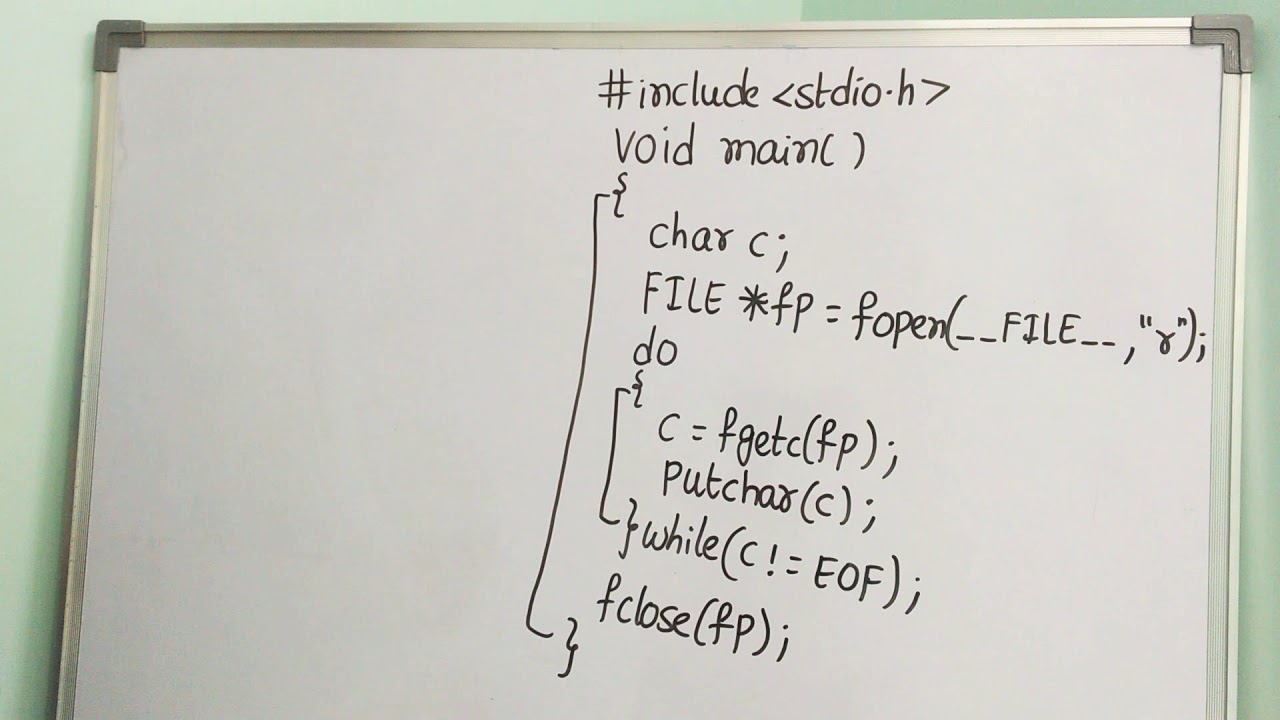 #include <stdio.h>
void main()
{
char c;
FILE *fp = fopen(__FILE__, "r");
do
{
c = fgetc(fp);
putchar(c);
}while(c != EOF);
fclose(fp);
}